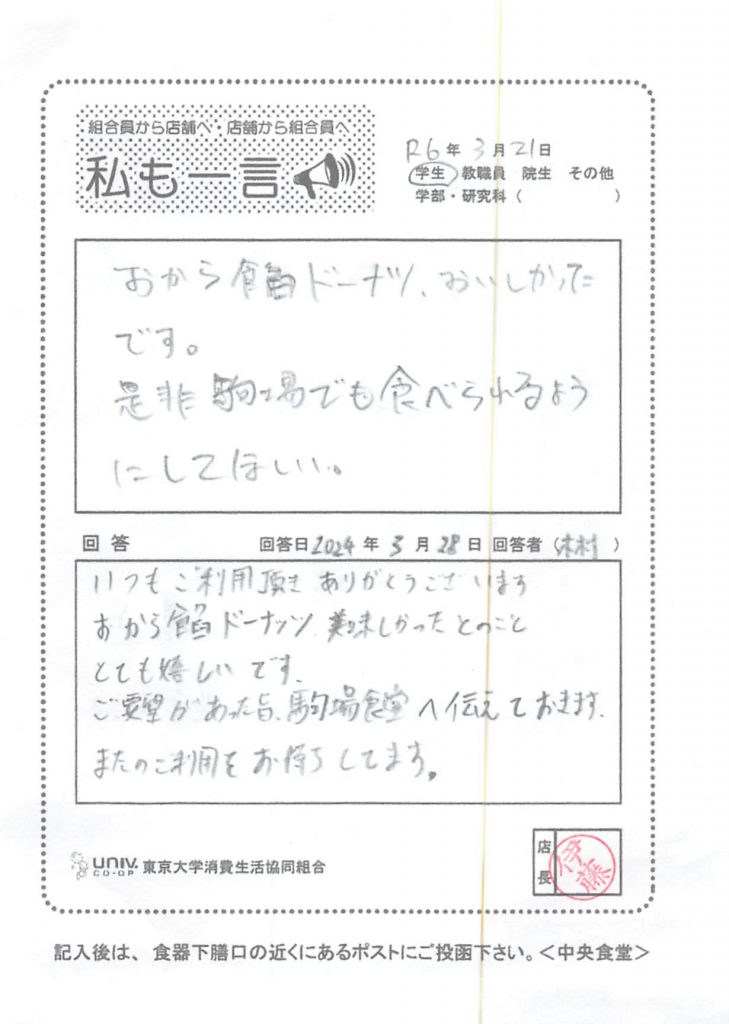 組合員から店舗へ・店舗から組合員へ
私も一言
R6年3月21日
学生 教職員 院生 その他
学部・研究科（ ）
おから餡ドーナツ、おいしかった
です。
是非駒場でも食べられるよう
にしてほしい。
回答 回答日2024年3月28日 回答者（木村）
いつもご利用頂き ありがとうございます
おから餡ドーナッツ 美味しかったとのこと
とても嬉しいです、
ご要望があった旨、駒場食堂へ伝えておきます、
またのご利用をお待ちしてます。
UNIV. CO-OP 東京大学消費生活協同組合
店長 伊藤
記入後は、食器下膳口の近くにあるポストにご投函下さい。＜中央食堂＞